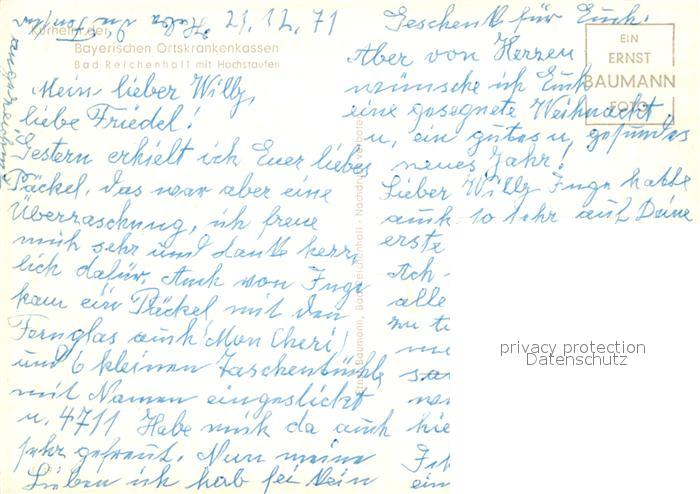 21.12.71
Kurheim der
Bayerischen Ortskrankenkassen
Bad Reichenhall mit Hochstaufen
Mein lieber Willy,
liebe Friedel!
Gestern erhielt ich Euer liebes
Päckel, das war aber eine
Überraschung, ich freue
mich sehr und danke herz
lich dafür. Auch von Inge
kam ein Päckel mit den
Fernglas auch (Mon Cheri)
und 6 kleinen Taschentüchle
mit Namen eingestickt
u. 4711 Habe mich da auch
sehr gefreut. Nun meine
Lieben ich hab fei kein
Geschenk für Euch.
Aber von Herzen
wünsche ich Euch
eine gesegnete Weihnacht
u, ein gutes u, gesundes
neues Jahr!
Lieber Willy Inge hatte
auch so sehr auf Deine
erste
Ach
alle
zu
hie
ein
Ernst Baumann, Bad Reichenhall - Nachdruck verboten
EIN
ERNST
BAUMANN
FOTO
privacy protection
Datenschutz